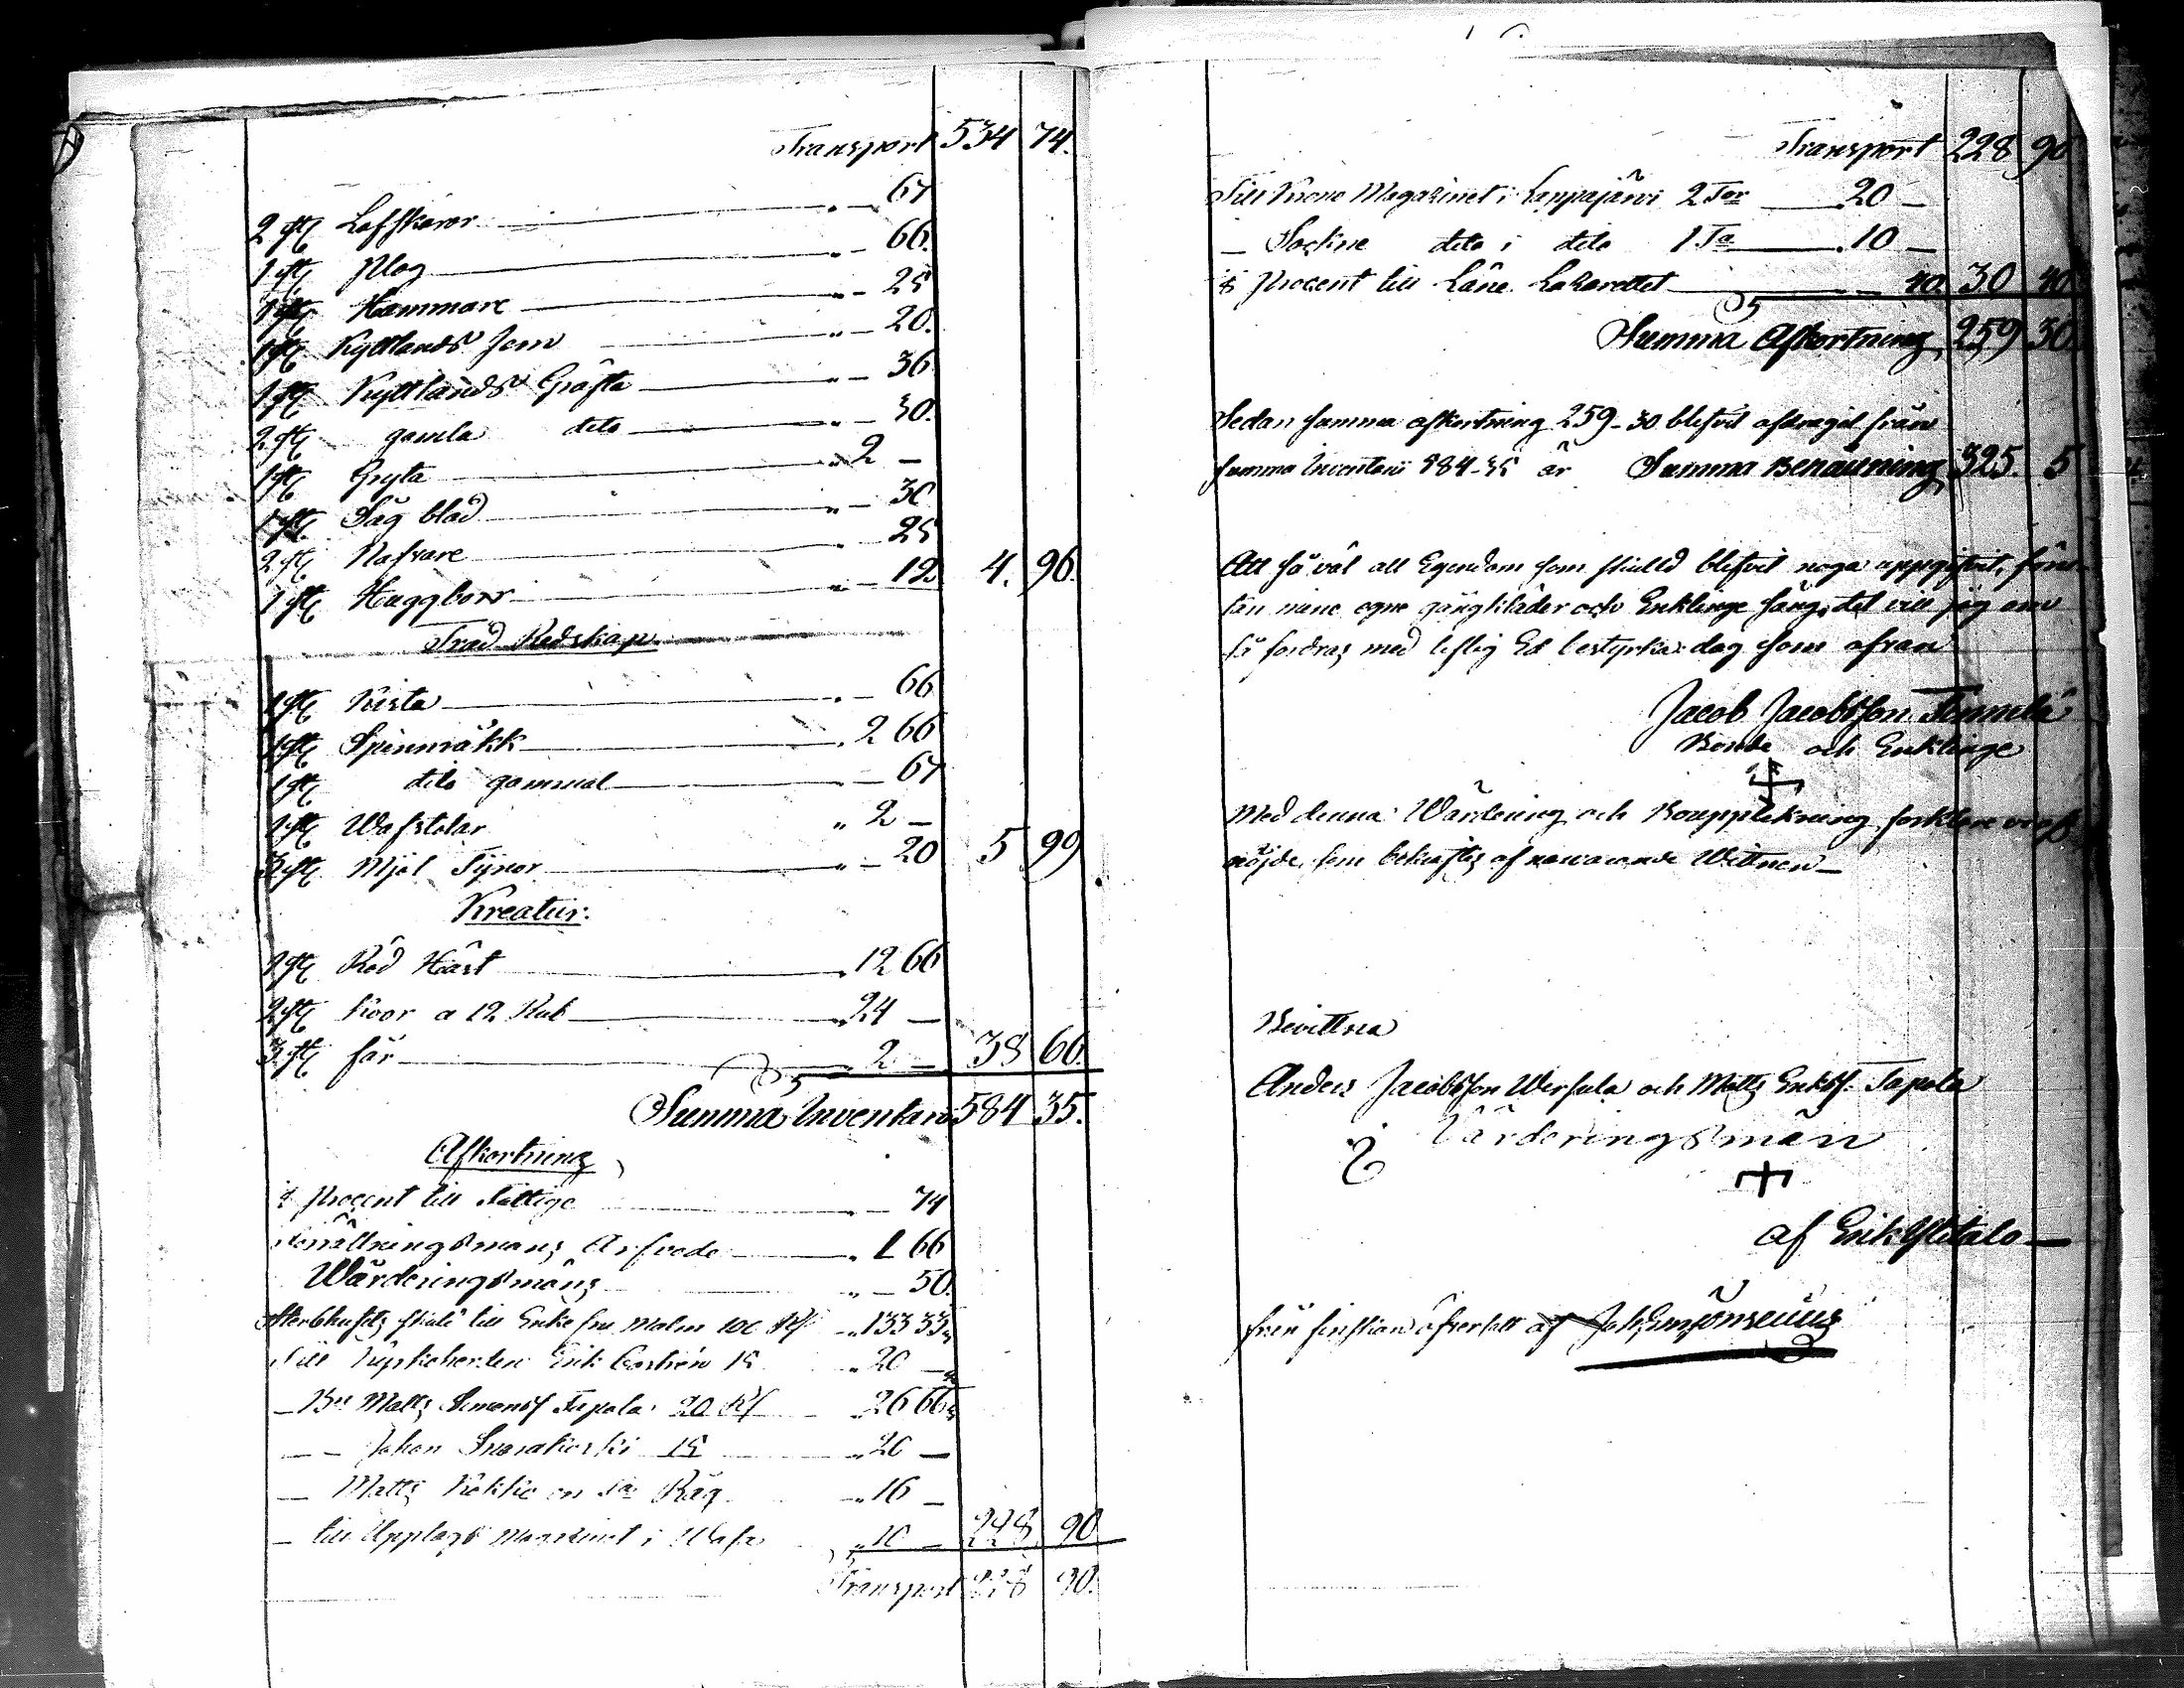 Transport 534 74.
2 st Lafskaror " — 67
1 st Plog " — 66.
1 st Hammare " — 25
1 st Kyttlands Jern " — 20.
1 st Kyttlands Gräfta " — 36
2 st gamla dito " — 30.
1 st Gryta " 2 —
1 st Såg blad " — 30
2 st Nafvare " 25
1 st Huggborr " — 12 4. 96.
Träd Redskap
1 st Kista " — 66
1 st Spinnräkk " 2 66
1 st dito gammal " — 67
1 st Wäfstolar " 2 —
3 st Mjöl Tynor " — 20 5 99
Kreatur.
1 st Röd Häst " 12 66
2 st Koor a 12 Rub " 24 —
3 st får " 2 — 38 66.
Summa Inventarii 584 35.
Afkortning
procent till Fattige " — 74
Förrättningsmans Arfvode " 1 66
Wärderingsmäns " — 50.
Sterbhusets skuld till Enke fru Malm 100 Rf " 133 33
Till Kyrkoherden Erik Castrén 15 " 20 —
— Bn Matts Simonsf Tapola 20 Rf 26 66
— — Johan 15 " 20 —
— Matts en Ta Råg " 16 —
— till Upplags Magazinet i Wasa " 10 — 228 90
Transport 228 90.
Transport 228 90
Till Krono Magazinet i Lappajärvi 2 Tor 20 —
— Sockne dito i dito 1 Ta 10 —
Procent till Läne Lazarettet — 40. 30 40
Summa Afkortning 259 30.
Sedan summa afkortning 259-30 blifvit afdragit från
summa Inventarii 584-35 är Summa Behållning 325. 5
Att så väl all Egendom som skuld blifvit noga uppgifvit, föru-
tan mine egne gångkläder och Enklinge säng, det vill jag om
så fordras med liflig Ed bestyrka: dag som ofvan
Jacob Jacobsson
Bonde och Enklinge
Med denna Wärdering och Bouppteckning förklare vi oss
nöjde, som bekräftas af närvarande Wittnen —
Bevittna
Anders Jacobsson och Matts Tapola
Värderingsmän
af Erik Ylitalo —
från finskan öfversatt af